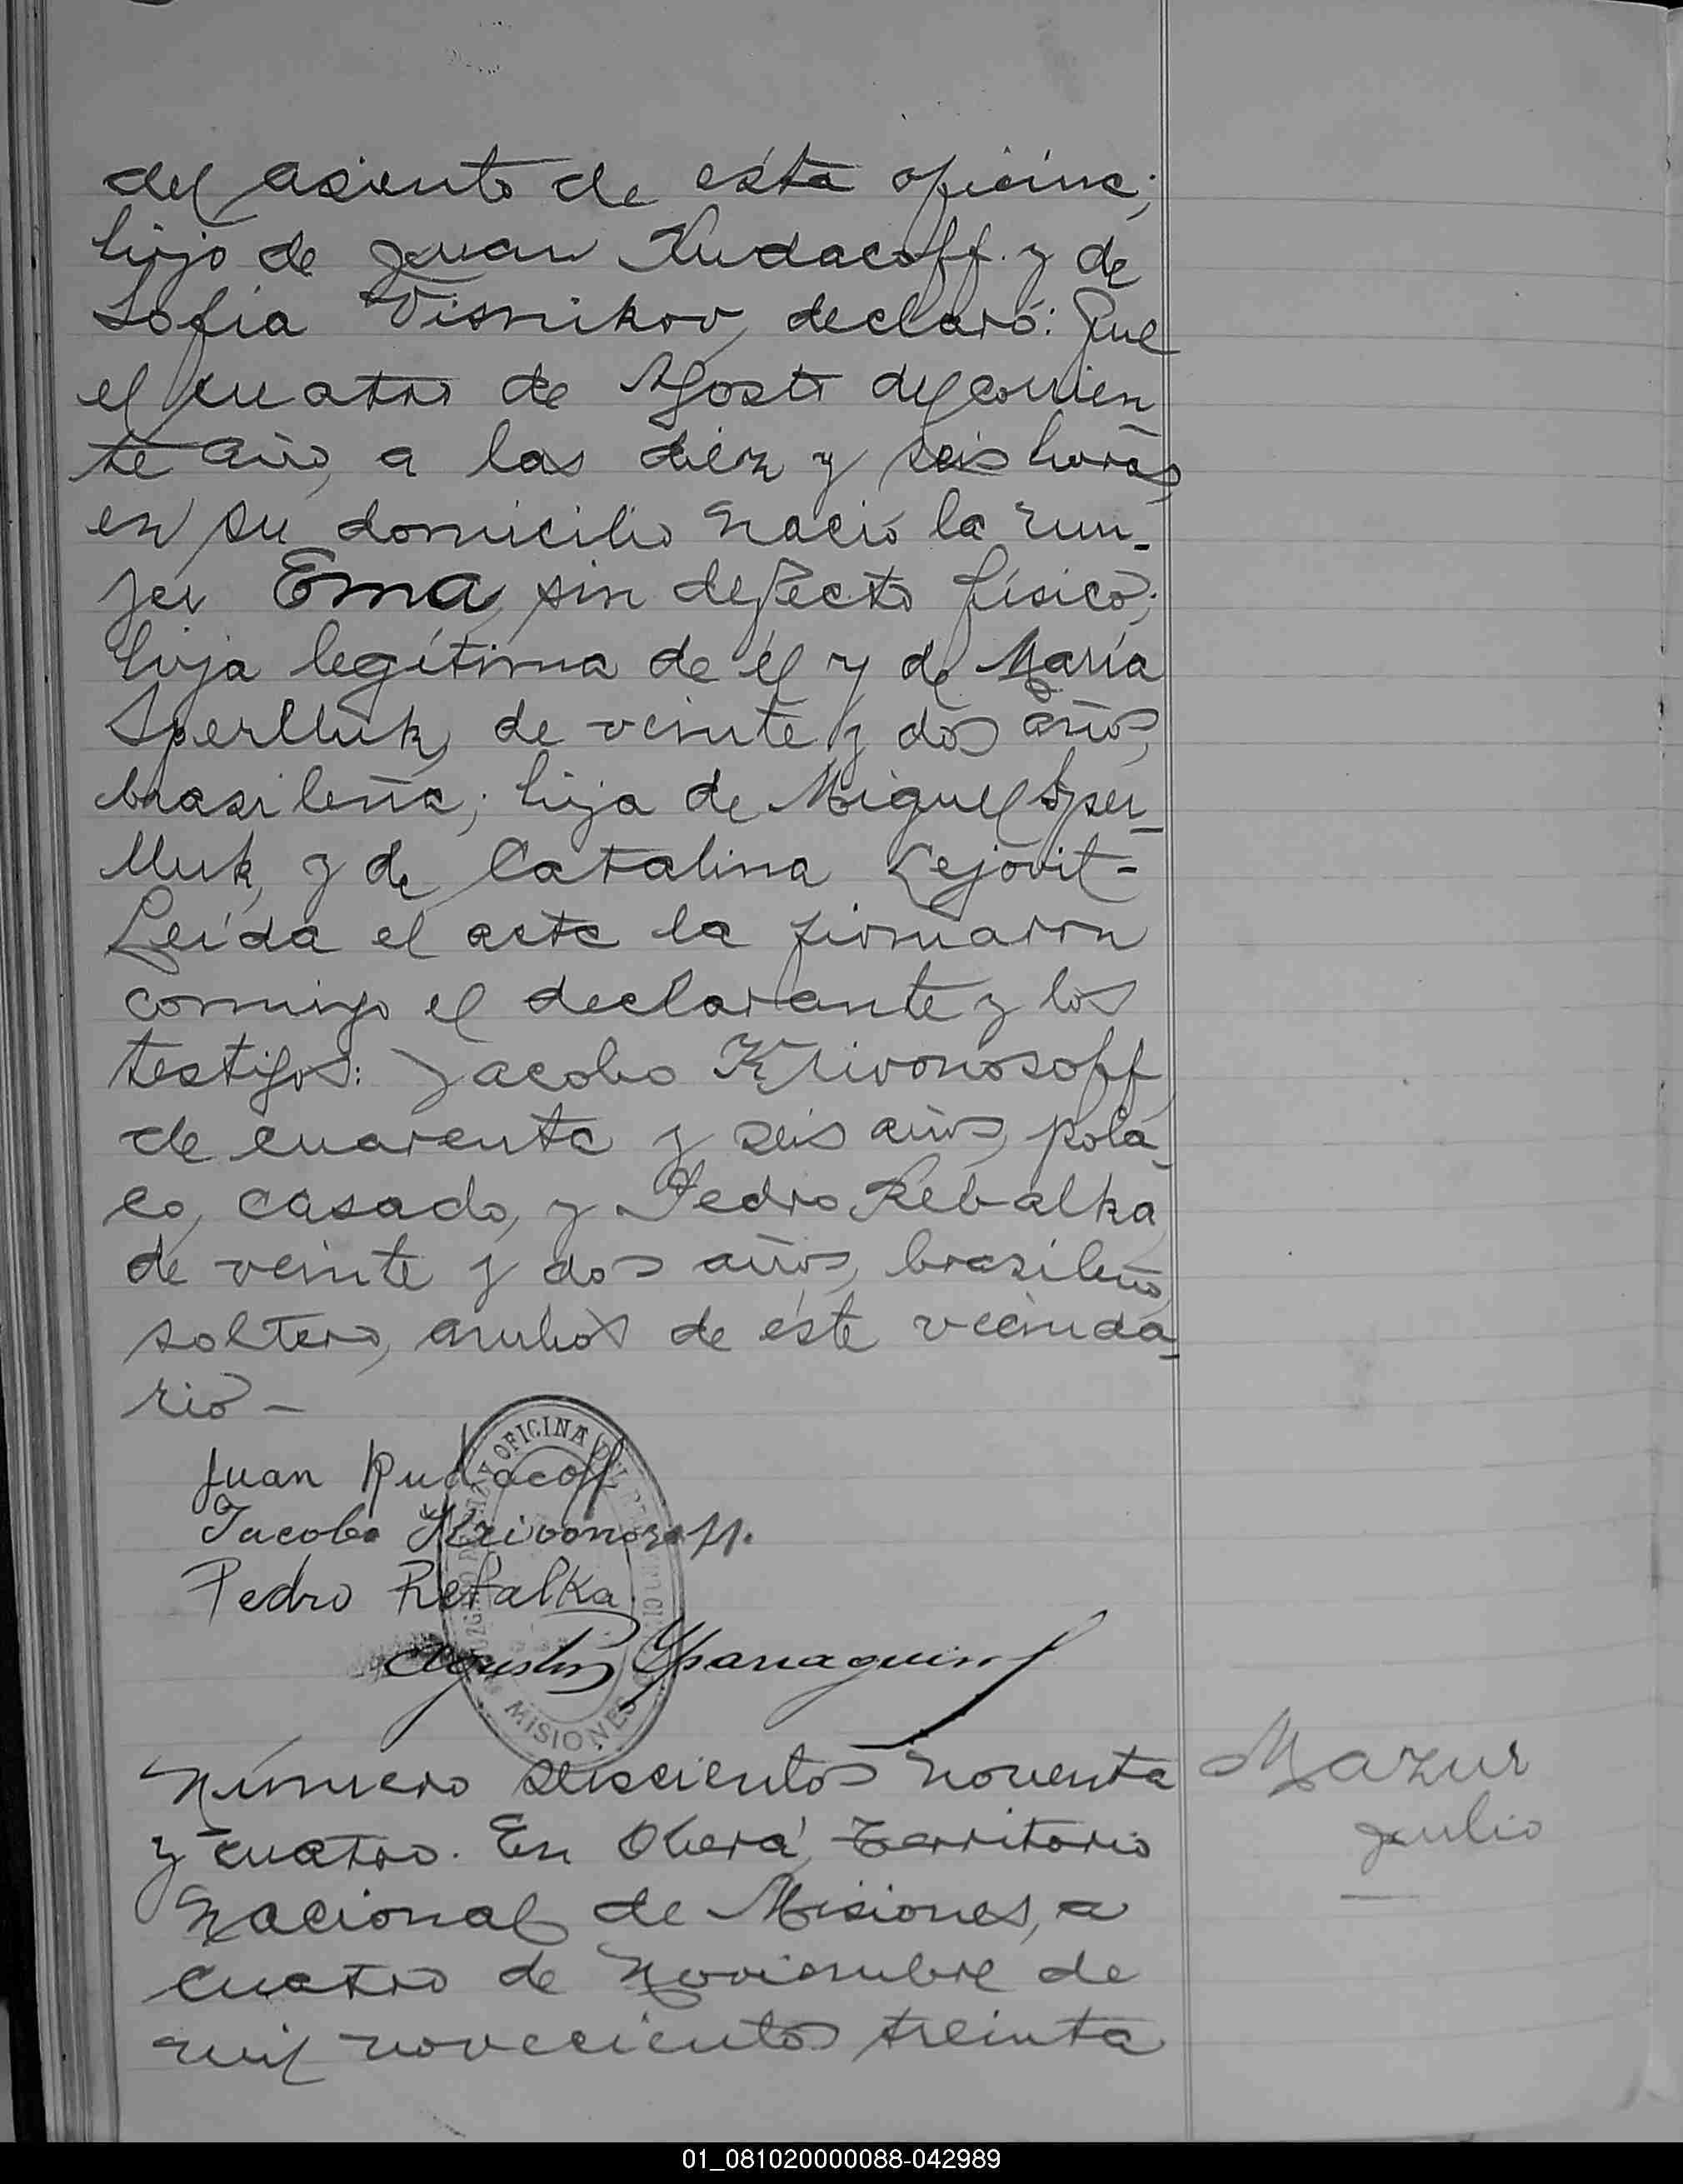 del asiento de ésta oficina;
hijo de Juan Kudacoff y de
Sofia Visnikov, declaró: Que
el cuatro de Agosto del corrien
te año, a las diez y seis horas,
en su domicilio nació la mu-
jer Ema, sin defecto físico;
hija legítima de él y de María
Sperlluk, de veinte y dos años,
brasileña; hija de Miguel Sper-
lluk, y de Catalina Lejovit-
Leída el acta la firmaron
conmigo el declarante y los
testigos: Jacobo Krivonosoff,
de cuarenta y seis años, pola-
co, casado, y Pedro Rebalka,
de veinte y dos años, brasileño,
soltero, ambos de éste vecinda-
rio-
Juan Kudacoff
Jacobo Krivonosoff.
Pedro Rebalka
OFICINA DEL
MISIONES
Agustin Ybarraguirre
Número seiscientos noventa
y cuatro. En Oberá, Territorio
Nacional de Misiones, a
cuatro de Noviembre de
mil novecientos treinta
Mazur
Julio
01_081020000088-042989